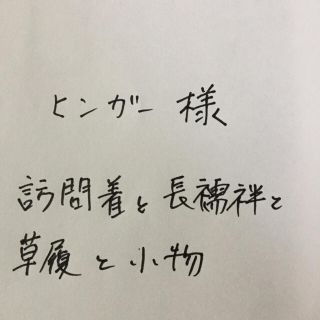 ヒンガー 様
訪問着と長襦袢と
草履と小物